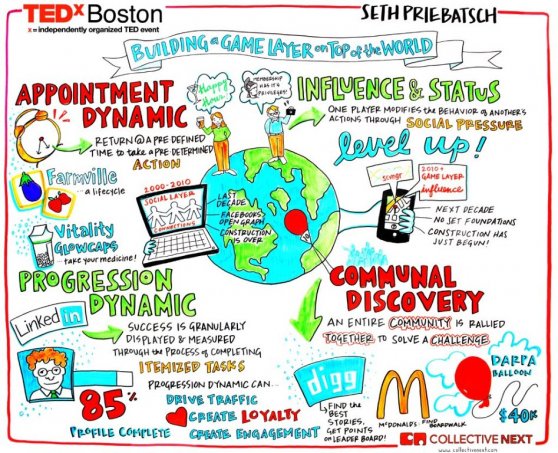 TEDx Boston
x = independently organized TED event
SETH PRIEBATSCH
BUILDING a GAME LAYER on TOP of the WORLD
APPOINTMENT
DYNAMIC
RETURN @ A PRE DEFINED
TIME to take a PRE DETERMINED
ACTION
Farmville
a lifecycle
Vitality
GLOWCAPS
take your medicine!
Happy
Hour
MEMBERSHIP
HAS ITS
PRIVILEGES!
INFLUENCE & STATUS
ONE PLAYER MODIFIES the BEHAVIOR of ANOTHER'S
ACTIONS THROUGH SOCIAL PRESSURE
level up!
2000-2010
SOCIAL LAYER
CONNECTIONS
LAST
DECADE
FACEBOOK'S
OPEN GRAPH
CONSTRUCTION
IS OVER
scvngr
2010+
GAME LAYER
influence
NEXT DECADE
NO SET FOUNDATIONS
CONSTRUCTION HAS
JUST BEGUN!
PROGRESSION
DYNAMIC
Linked in
SUCCESS IS GRANULARLY
DISPLAYED & MEASURED
THROUGH the PROCESS of COMPLETING
ITEMIZED TASKS
PROGRESSION DYNAMIC CAN:
DRIVE TRAFFIC
CREATE LOYALTY
CREATE ENGAGEMENT
85%
PROFILE COMPLETE
COMMUNAL
DISCOVERY
AN ENTIRE COMMUNITY IS RALLIED
TOGETHER TO SOLVE A CHALLENGE
digg
FIND THE
BEST
STORIES,
GET POINTS
ON LEADER BOARD!
McDONALDS - FIND
BOARDWALK
DARPA
BALLOON
$40K
COLLECTIVE NEXT
www.collectivenext.com